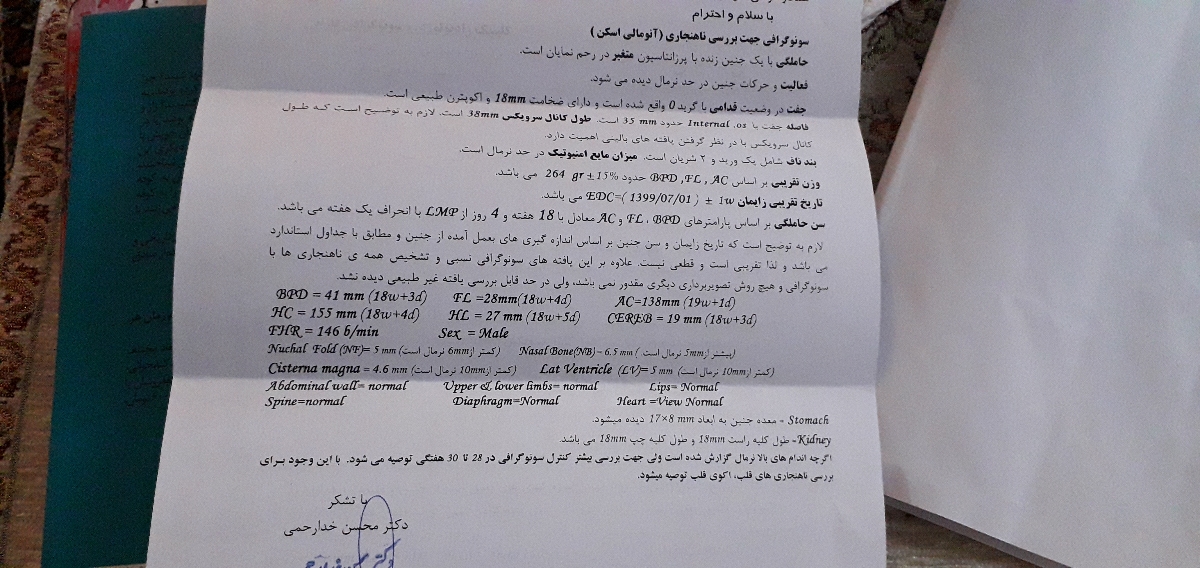 با سلام و احترام
سونوگرافی جهت بررسی ناهنجاری (آنومالی اسکن )
حاملگی با یک جنین زنده با پرزانتاسیون متغیر در رحم نمایان است.
فعالیت و حرکات جنین در حد نرمال دیده می شود.
جفت در وضعیت قدامی با گرید 0 واقع شده است و دارای ضخامت 18mm و اکوپترن طبیعی است.
فاصله جفت با Internal .os حدود 35 mm است. طول کانال سرویکس 38mm است. لازم به توضیح است که طول
کانال سرویکس با در نظر گرفتن یافته های بالینی اهمیت دارد.
بند ناف شامل یک ورید و ۲ شریان است. میزان مایع امنیوتیک در حد نرمال است.
وزن تقریبی بر اساس BPD ,FL , AC حدود 264 gr ±15% می باشد.
تاریخ تقریبی زایمان EDC=( 1399/07/01 ) ± 1w می باشد.
سن حاملگی بر اساس پارامترهای FL ، BPD و AC معادل با 18 هفته و 4 روز از LMP با انحراف یک هفته می باشد.
لازم به توضیح است که تاریخ زایمان و سن جنین بر اساس اندازه گیری های بعمل آمده از جنین و مطابق با جداول استاندارد
می باشد و لذا تقریبی است و قطعی نیست. علاوه بر این یافته های سونوگرافی نسبی و تشخیص همه ی ناهنجاری ها با
سونوگرافی و هیچ روش تصویربرداری دیگری مقدور نمی باشد، ولی در حد قابل بررسی یافته غیر طبیعی دیده نشد.
BPD = 41 mm (18w+3d) FL =28mm(18w+4d) AC=138mm (19w+1d)
HC = 155 mm (18w+4d) HL = 27 mm (18w+5d) CEREB = 19 mm (18w+3d)
FHR = 146 b/min Sex = Male
Nuchal Fold (NF)= 5 mm (کمتر از 6mm نرمال است) Nasal Bone(NB)= 6.5 mm ( بیشتر از 5mm نرمال است)
Cisterna magna = 4.6 mm (کمتر از 10mm نرمال است) Lat Ventricle (LV)= 5 mm (کمتر از 10mm نرمال است)
Abdominal wall= normal Upper & lower limbs= normal Lips= Normal
Spine=normal Diaphragm=Normal Heart =View Normal
Stomach - معده جنین به ابعاد 17×8 mm دیده میشود.
Kidney- طول کلیه راست 18mm و طول کلیه چپ 18mm می باشد.
اگرچه اندام های بالا نرمال گزارش شده است ولی جهت بررسی بیشتر کنترل سونوگرافی در 28 تا 30 هفتگی توصیه می شود. با این وجود برای
بررسی ناهنجاری های قلب، اکوی قلب توصیه میشود.
با تشکر
دکتر محسن خدارحمی